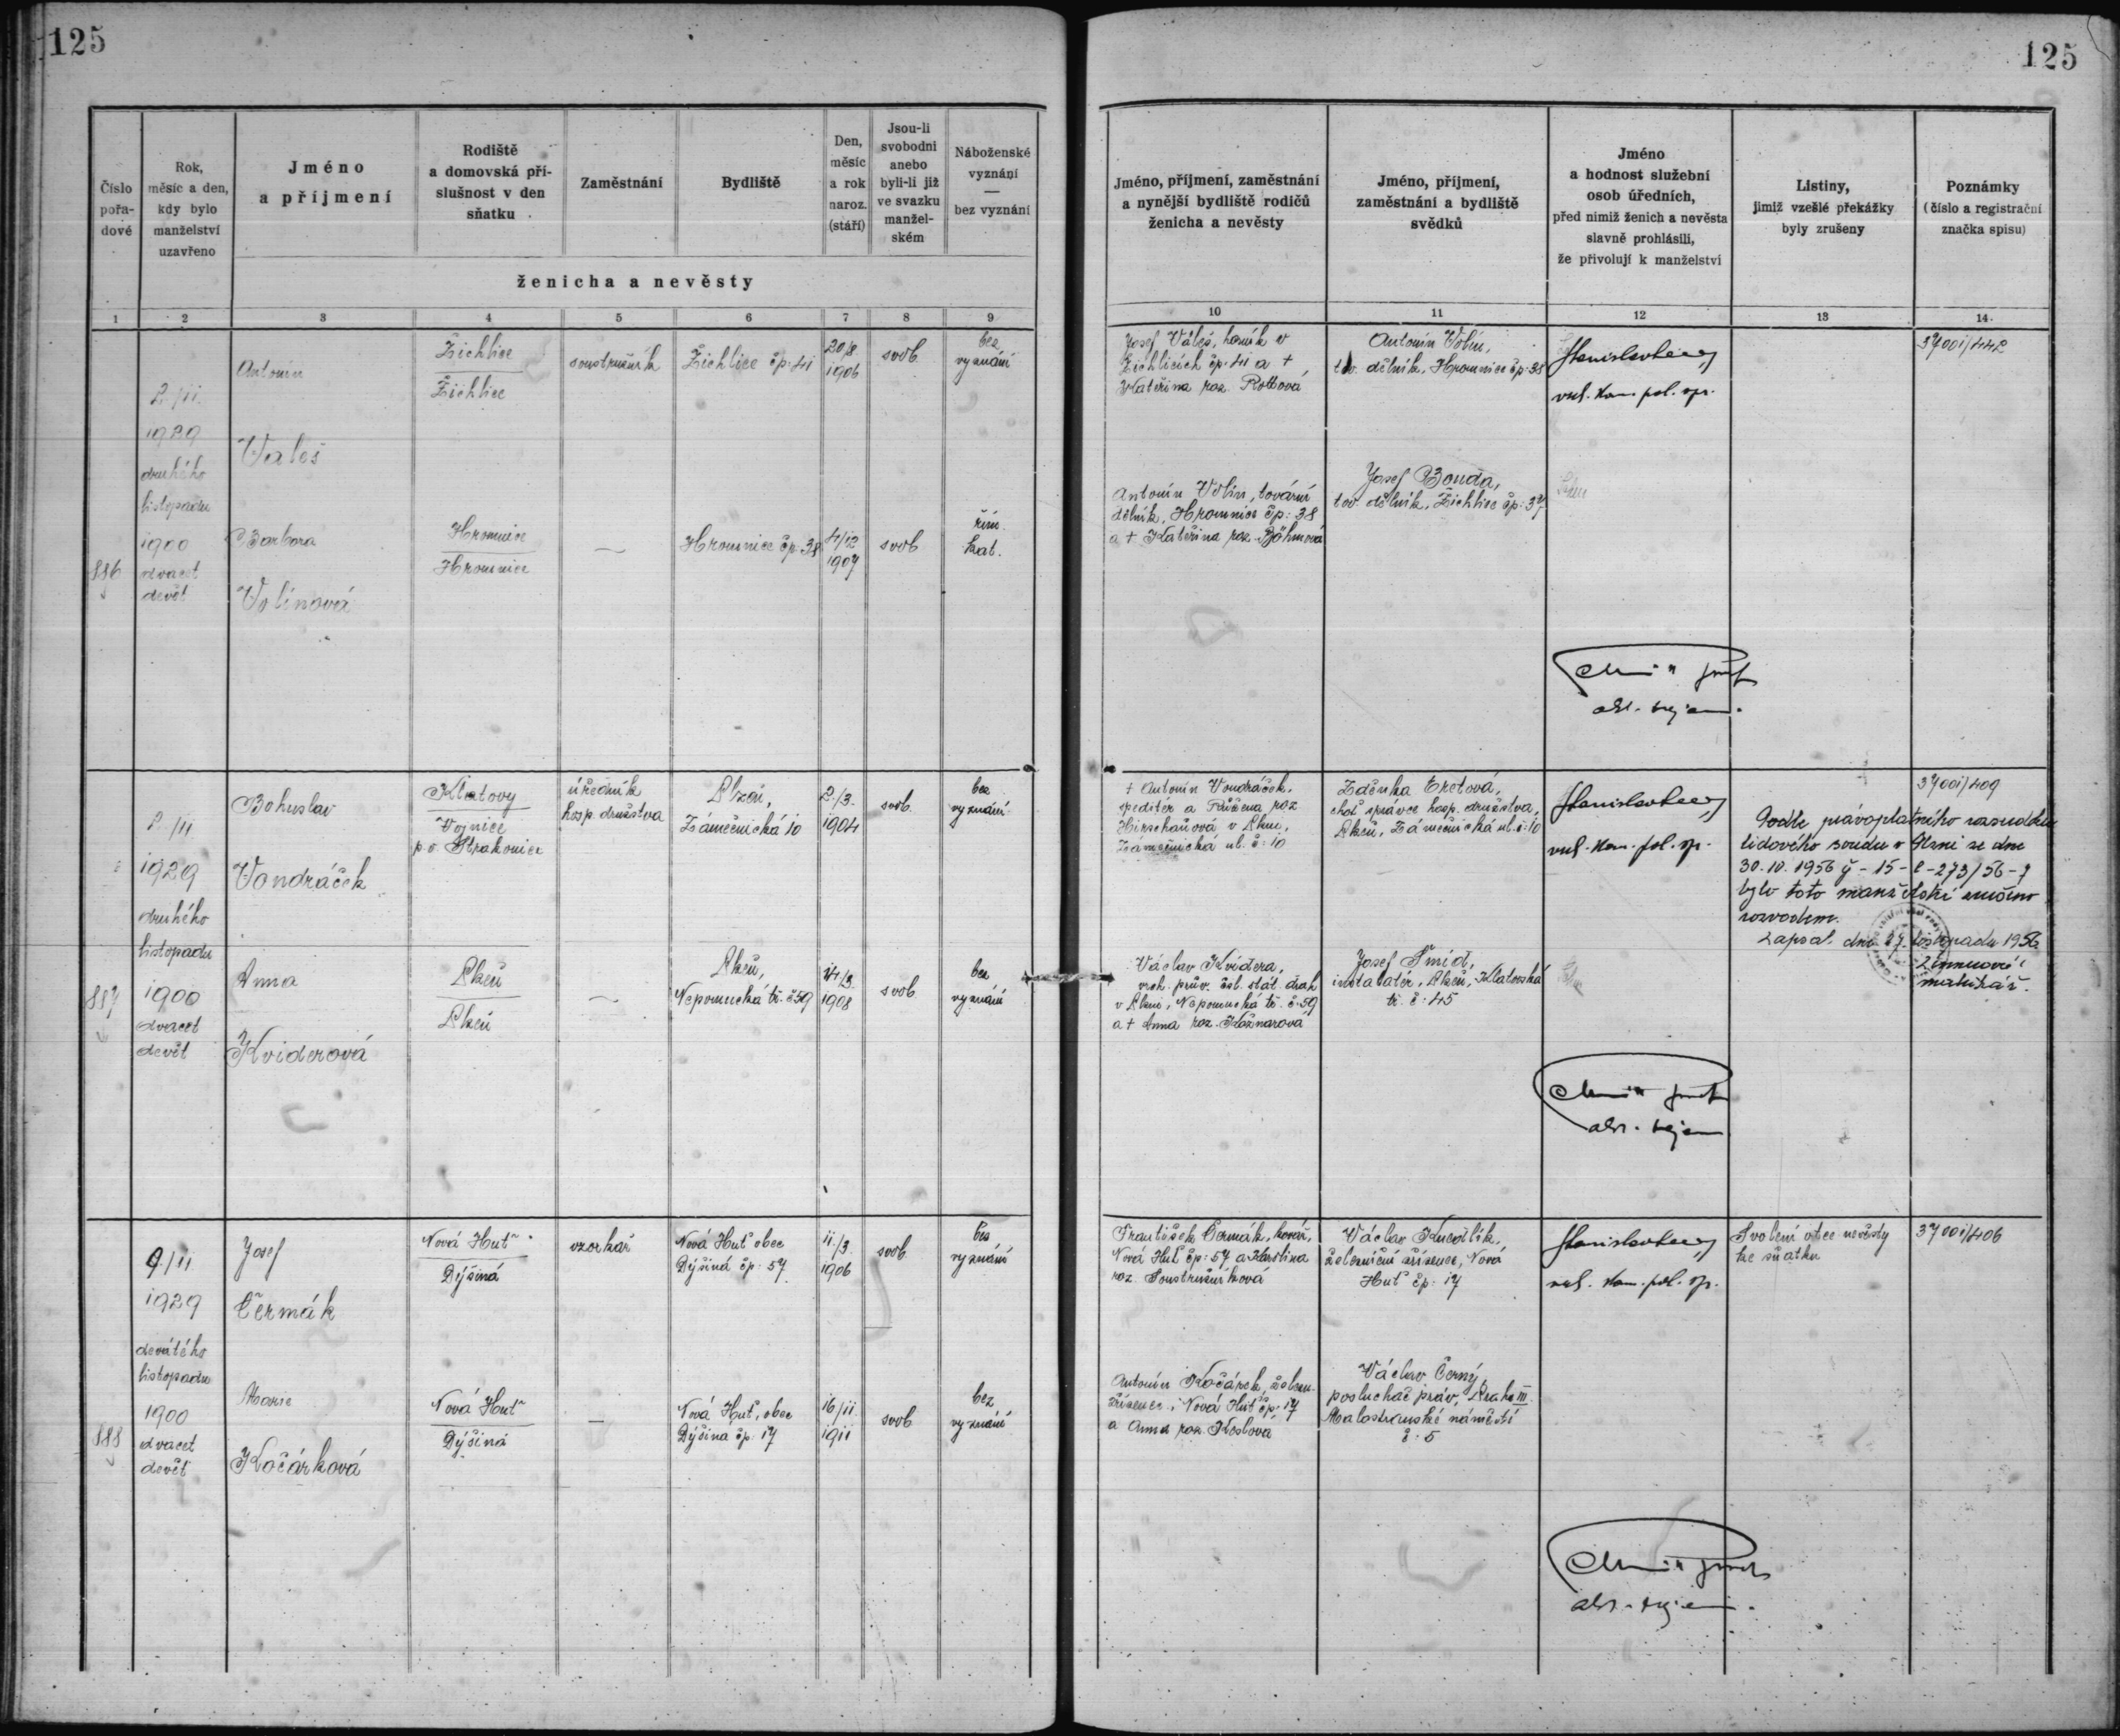 125
125
Číslo
pořa-
dové
Rok,
měsíc a den,
kdy bylo
manželství
uzavřeno
Jméno
a příjmení
Rodiště
a domovská pří-
slušnost v den
sňatku
Zaměstnání
Bydliště
Den,
měsíc
a rok
naroz.
(stáří)
Jsou-li
svobodni
anebo
byli-li již
ve svazku
manžel-
ském
Náboženské
vyznání
—
bez vyznání
ženicha a nevěsty
Jméno, příjmení, zaměstnání
a nynější bydliště rodičů
ženicha a nevěsty
Jméno, příjmení,
zaměstnání a bydliště
svědků
Jméno
a hodnost služební
osob úředních,
před nimiž ženich a nevěsta
slavně prohlásili,
že přivolují k manželství
Listiny,
jimiž vzešlé překážky
byly zrušeny
Poznámky
(číslo a registrační
značka spisu)
1 2 3 4 5 6 7 8 9 10 11 12 13 14
886
2./11.
1929
druhého
listopadu
1900
dvacet
devět
Antonín
Valeš
Žichlice
Žichlice
soustružník
Žichlice čp: 41
20/8.
1906
svob.
bez
vyznání
Josef Valeš, horník v
Žichlicích čp: 41 a †
Kateřina roz. Rottová
Antonín Volín,
tov. dělník, Hromnice čp: 38
vrch. kom. pol. spr.
37001/442
Barbora
Volínová
Hromnice
Hromnice
—
Hromnice čp. 38
4/12
1907
svob
řím.
kat.
Antonín Volín, tovární
dělník, Hromnice čp: 38
a † Kateřina roz. Böhmová
Josef Bouda,
tov. dělník, Žichlice čp: 37
887
2./11
1929
druhého
listopadu
1900
dvacet
devět
Bohuslav
Vondráček
Klatovy
Vojnice
p.o. Strakonice
úředník
hosp. družstva
Plzeň,
Zámečnická 10
2./3.
1904
svob.
bez
vyznání
† Antonín Vondráček,
speditér a Růžena roz
Hirschanová v Plzni,
Zámečnická ul. č: 10
Zdeňka Eretová,
choť správce hosp. družstva,
Plzeň, Zámečnická ul. č: 10
vrch. kom. pol. sp.
37001/409
Podle právoplatného rozsudku
lidového soudu v Plzni ze dne
30. 10. 1956 č - 15 - C - 273/56 - 7
bylo toto manželství zrušeno
rozvodem.
Zapsal dne 27. listopadu 1956
matrikář.
Anna
Kviderová
Plzeň
Plzeň
—
Plzeň,
Nepomucká tř. č 59
14/3.
1908
svob
bez
vyznání
Václav Kvidera,
vrch. prův. čsl. stát. drah
v Plzni, Nepomucká tř. č: 59
a † Anna roz. Kožnarová
Josef Šmíd,
instalatér, Plzeň, Klatovská
tř. č: 45
888
9./11
1929
devátého
listopadu
1900
dvacet
devět
Josef
Čermák
Nová Huť
Dýšina
vzorkař
Nová Huť obec
Dýšina čp: 57
11./3.
1906
svob.
bez
vyznání
František Čermák, kovář,
Nová Huť čp: 57 a Karolina
roz. Soustružníková
Václav Knedlík,
železniční zřízenec, Nová
Huť čp: 17
vrch. kom. pol. sp.
Svolení otce nevěsty
ke sňatku
37001/406
Marie
Kočárková
Nová Huť
Dýšina
—
Nová Huť, obec
Dýšina čp. 17
16/11.
1911
svob
bez
vyznání
Antonín Kočárek, želez.
zřízenec, Nová Huť čp: 17
a Anna roz. Koslová
Václav Černý,
posluchač práv, Praha III.
Malostranské náměstí
č. 5